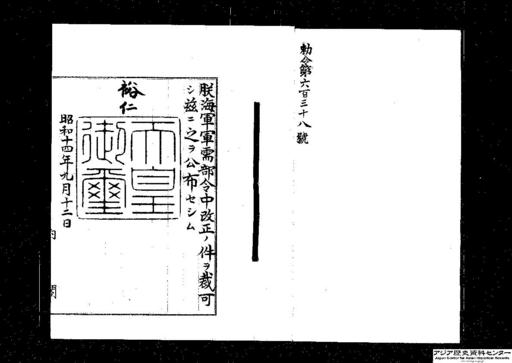 勅令第六百三十八號
朕海軍軍需部令中改正ノ件ヲ裁可
シ茲ニ之ヲ公布セシム
裕仁
天皇御璽
昭和十四年九月十二日
内閣
アジア歴史資料センター
Japan Center for Asian Historical Records